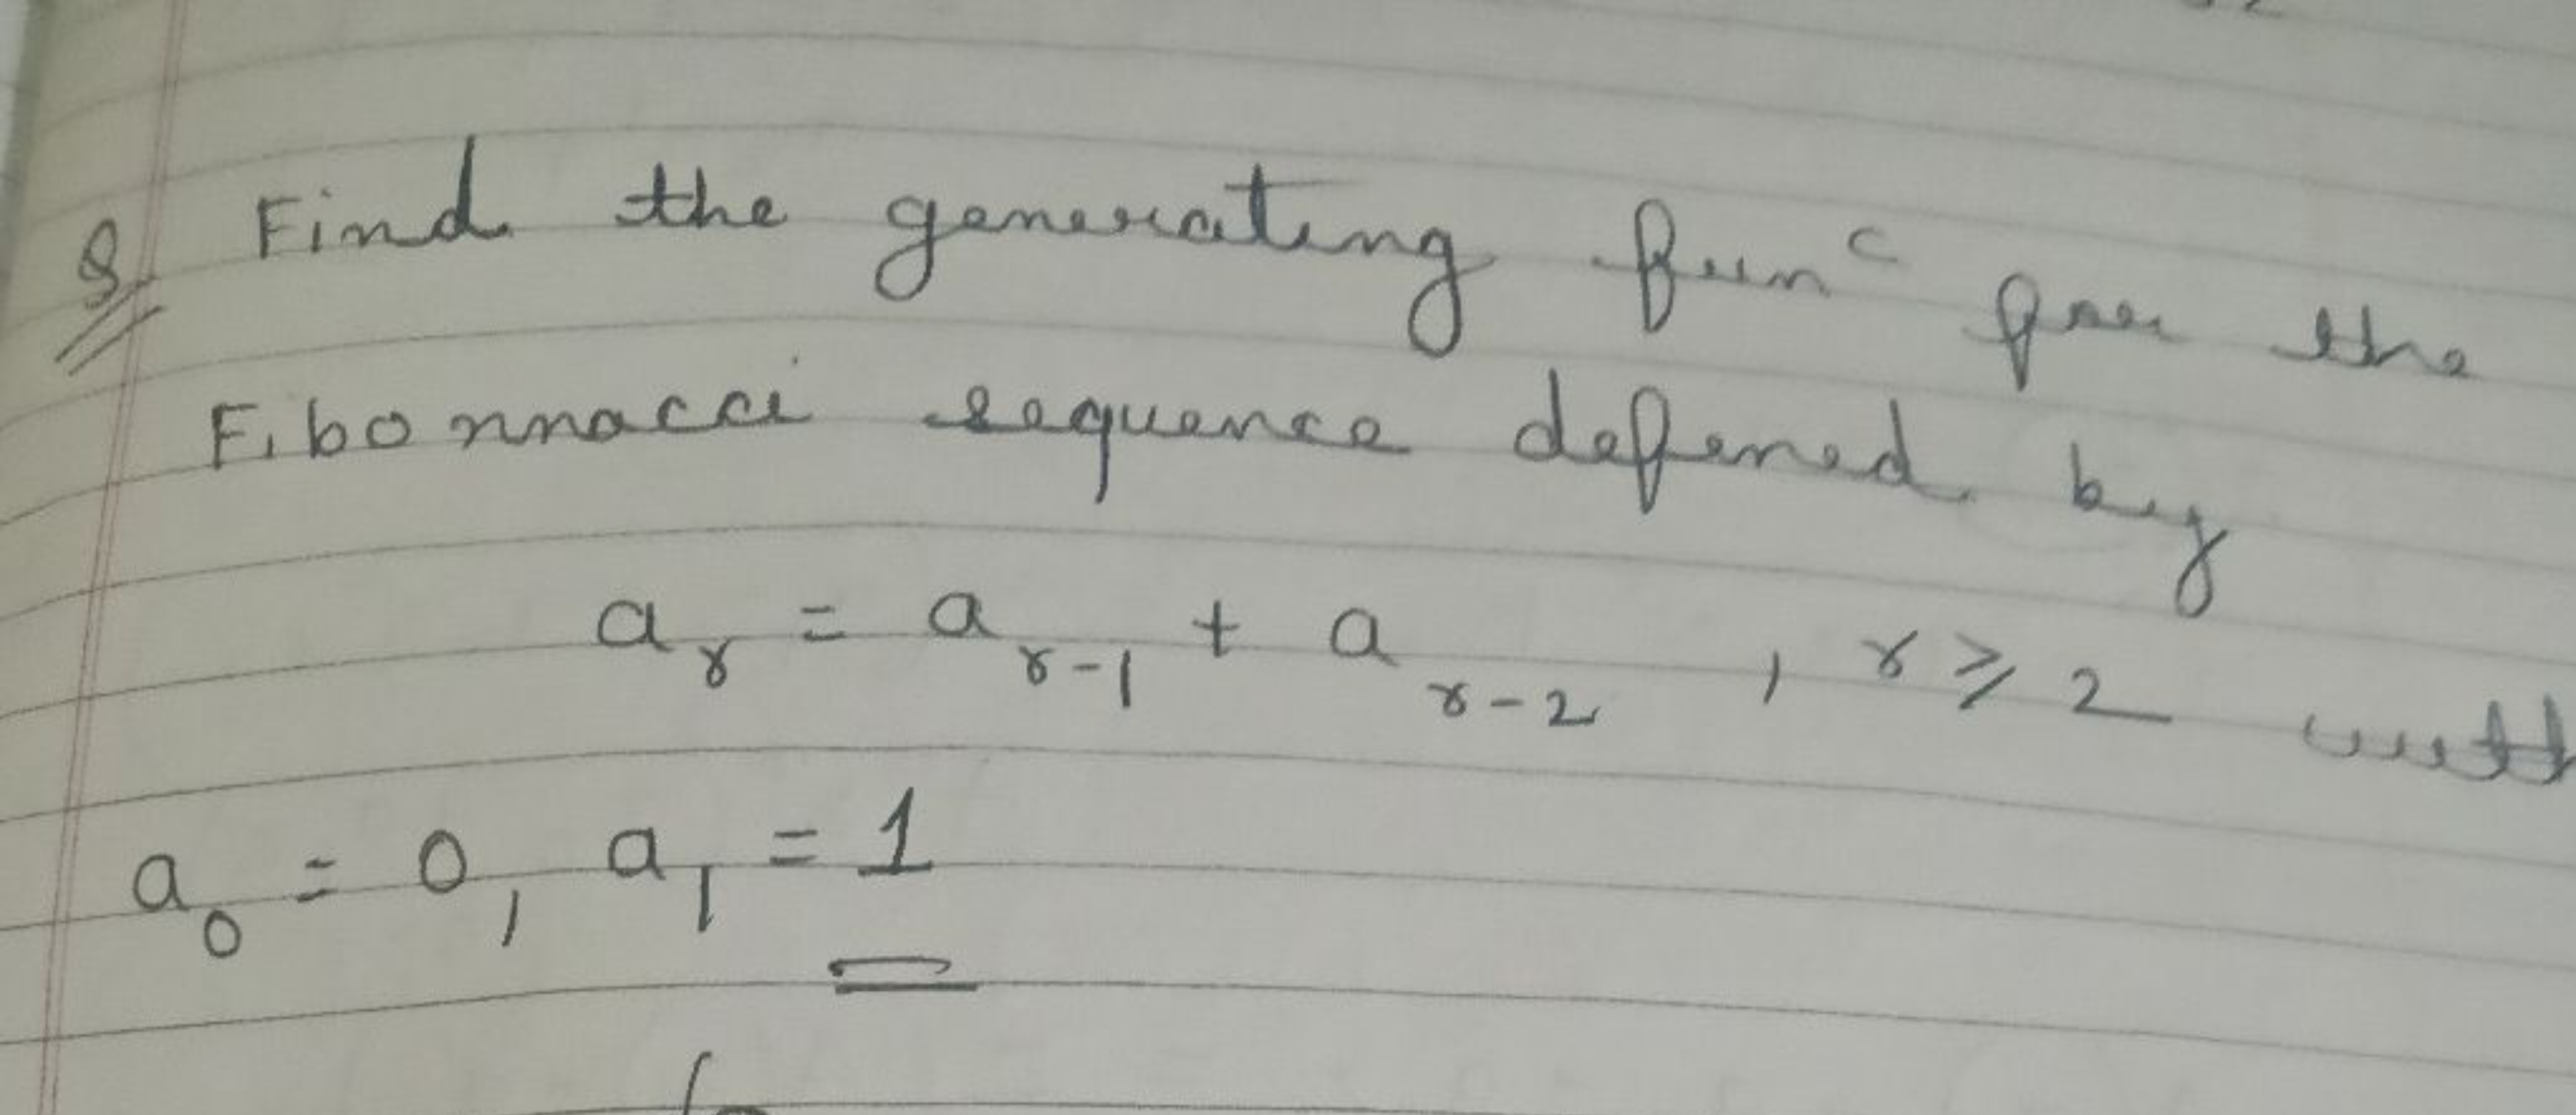 Q. Find the generating func for the
Fibonnacci sequence defined by
a_r = a_{r-1} + a_{r-2} , r ≥ 2 with
a_0 = 0, a_1 = 1